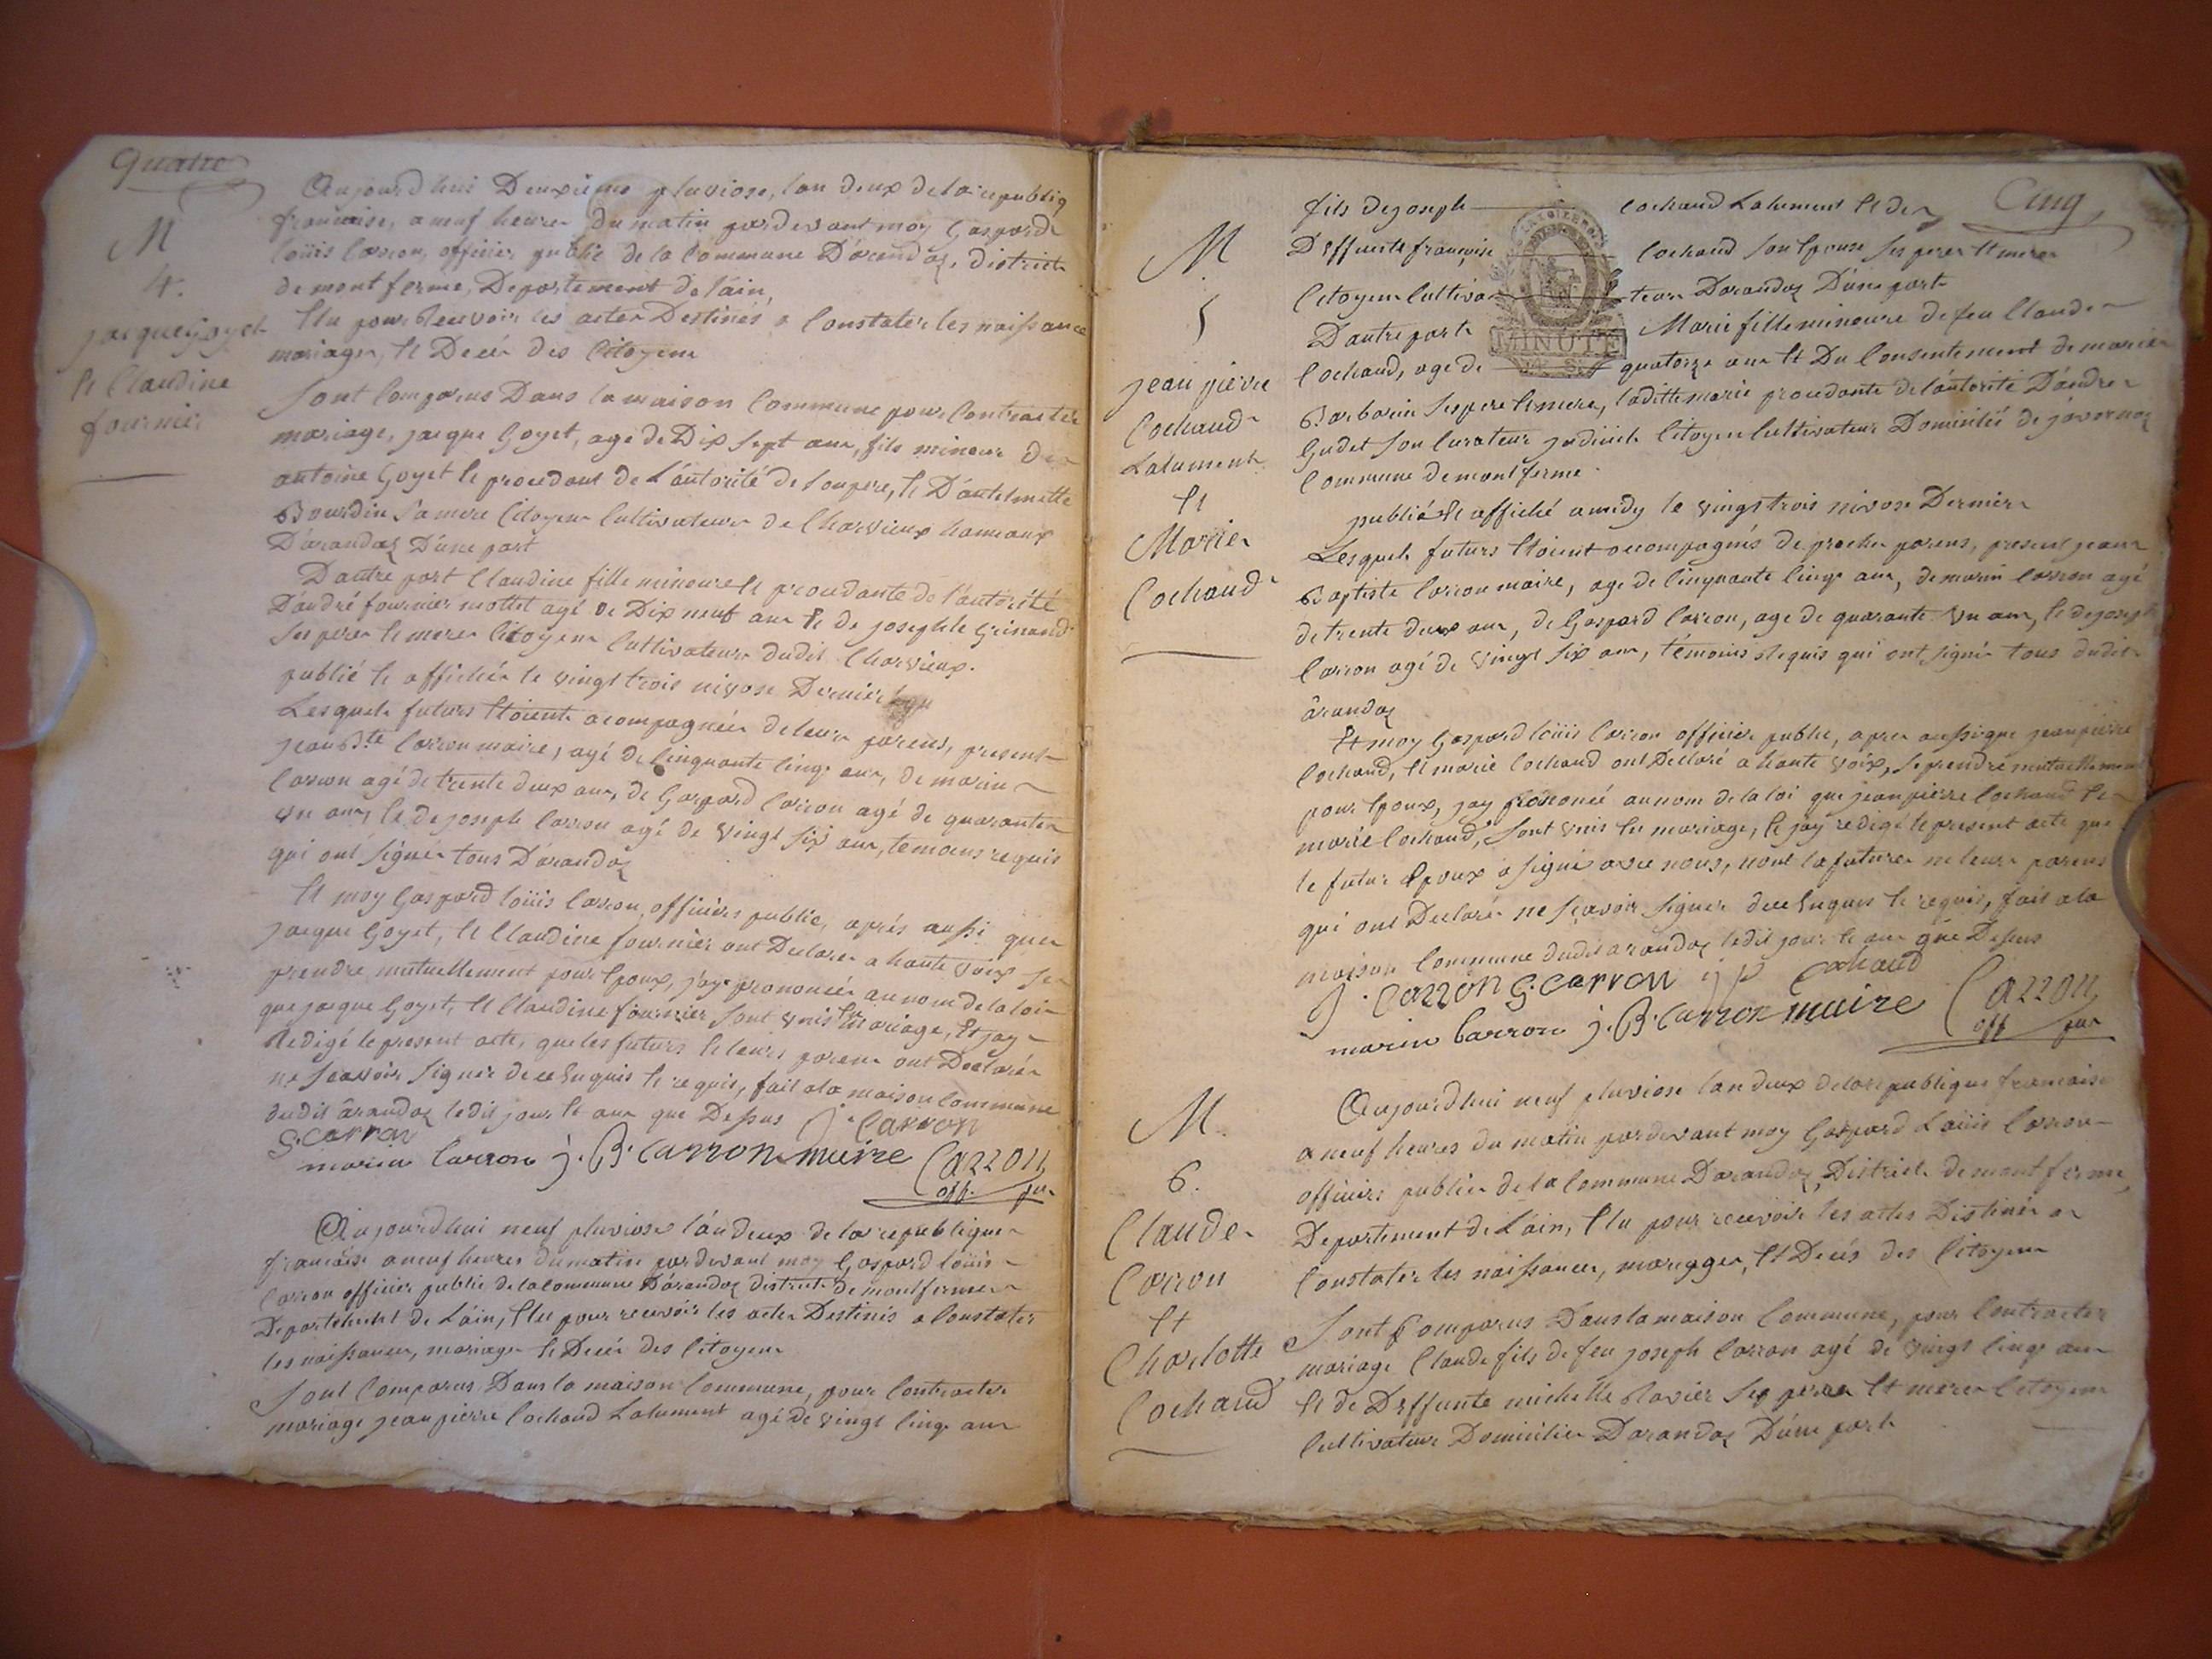 Quatre
M
4.
jacque goyet
et Claudine
fournier
Aujourdhui Deuxieme pluviose, lan deux de la republiq
francaise, a neuf heures du matin pardevant moy Gaspard
loüis Carron, officier public de la Commune D'arandaz, district
de montferme, Departement de l'ain,
Elu pour Recevoir les actes Destinés a Constater les naissance
mariages, et Decés des Citoyens
Sont Comparus Dans la maison Commune pour Contracter
mariage, jacque Goyet, agé de Dix Sept ans, fils mineur de
antoine Goyet et procedant de L'autorité de Son pere, et D'antelmette
Bourdin Sa mere Citoyens Cultivateurs de Charvieux hameaux
D'arandaz D'une part
D'autre part Claudine fille mineure et procedante de l'autorité
D'andré fournier mollet agé de Dix neuf ans et de josephte Grinand
Ses peres et meres Citoyens Cultivateurs dudit Charvieux.
publié et affichés le vingt trois nivose Dernier
Lesquels futurs Etoients acompagnées de leurs parens, present
jean B.te Carron maire, agé de Cinquante Cinq ans, de marin
Carron agé de trente deux ans, de Gaspard Carron agé de quarante
un ans, et de joseph Carron agé de vingt Six ans, temoins requis
qui ont Signés tous D'arandaz
Et moy Gaspard loüis Carron officier public, aprés aussi que
jacque Goyet, et Claudine fournier ont Declarer a haute voix Se
prendre mutuellement pour Epoux, j'ay prononcée au nom de la loi
que jacque Goyet, et Claudine fournier Sont unis En mariage, Et jay
Redigé le present acte, que les futurs et leurs parens ont Declarés
ne Scavoir Signer de ce Enquis et requis, fait a la maison Commune
dudit arandaz ledit jour et an que Dessus J. Carron
G. Carron
marin Carron j. B. Carron maire Carron
off. pu.
Aujourdhui neuf pluviose l'an deux de la republique
francaise a neuf heures du matin pardevant moy Gaspard loüis
Carron officier public de la Commune D'arandaz district de montferme
Departement de L'ain, Elu pour recevoir les actes Destinés a Constater
les naissances, mariages et Decés des Citoyens
Sont Comparus Dans la maison Commune, pour Contracter
mariage jean pierre Cochaud Lalument agé de vingt Cinq ans
Cinq
M
5
jean pierre
Cochaud
Lalument
Et
Marie
Cochaud
fils de joseph Cochaud Lalument Et de
Deffuncte françoise Cochaud Son Epouse Ses peres Et meres
Citoyens Cultiva teurs Darandaz D'une part
D'autre part Marie fille mineure de feu Claude
MINUTE
Cochaud, agé de quatorze ans Et Du Consentement de marie
Barbarin Ses pere et mere, laditte marie procedante de l'autorité D'andre
Gudet Son Curateur judiciel Citoyen Cultivateur Domicilié de javornoz
Commune de montferme.
publié Et affiché a midy le vingt trois nivose Dernier
Lesquels futurs Etoient acompagnés de proches parens, present jean
Baptiste Carron maire, age de Cinquante Cinq ans, de marin Carron agé
de trente deux ans, de Gaspard Carron, age de quarante un ans, et de joseph
Carron agé de vingt Six ans, témoins Requis qui ont Signés tous dudit
arandaz
Et moy Gaspard loüis Carron officier public, apres aussi que jean pierre
Cochaud, Et marie Cochaud ont Declaré a haute voix, Se prendre mutuellement
pour Epoux, jay prononcé au nom de la loi que jean pierre Cochaud Et
marie Cochaud, Sont unis En mariage, Et jay redigé le present acte que
le futur Epoux a Signé avec nous, non la future ne leurs parens
qui ont Declarés ne Scavoir Signer de ce Enquis et requis, fait a la
maison Commune dudit arandaz ledit jour et an que Dessus
J. Carron G. Carron j p Cochaud
marin Carron j. B. Carron maire Carron
off pu
M.
6.
Claude
Carron
Et
Charlotte
Cochaud
Aujourdhui neuf pluviose lan deux de la republique francaise
a neuf heures du matin pardevant moy Gaspard Loüis Carron
officier public de la Commune Darandaz, District de montferme,
Departement de L'ain, Elu pour recevoir les actes Destinés a
Constater les naissances, mariages, Et Decés des Citoyens
Sont Comparus Dans la maison Commune, pour Contracter
mariage Claude fils de feu joseph Carron agé de vingt Cinq ans
Et de Deffunte michelle Ravier Ses peres Et meres Citoyens
Cultivateur Domicilié Darandaz D'une part